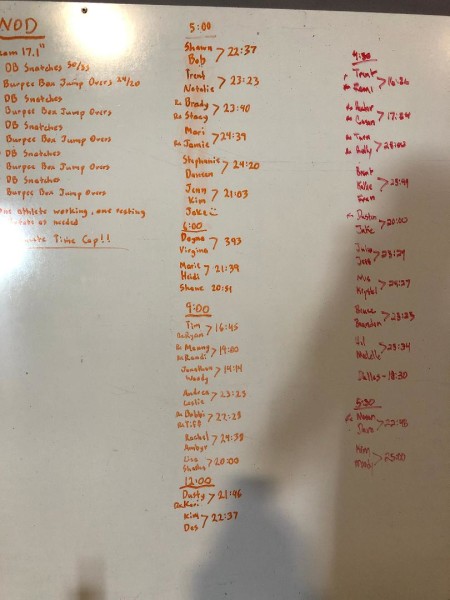 WOD
Team 17.1"
DB Snatches 50/35
Burpee Box Jump Overs 24/20
DB Snatches
Burpee Box Jump Overs
DB Snatches
Burpee Box Jump Overs
DB Snatches
Burpee Box Jump Overs
DB Snatches
Burpee Box Jump Overs
one athlete working, one resting
as needed
Time Cap!!
5:00
Shawn
Bob > 22:37
Trent
Natalie > 23:23
Rx Brady
Rx Stacy > 23:40
Mari
Rx Jamie > 24:39
Stephanie
> 24:20
Jenn
Kim > 21:03
Jake
6:00
Dayna
Virginia > 393
Marie
Heidi > 21:39
Shane 20:51
9:00
Tim
Rx Ryan > 16:45
Rx Manny
Rx Randi > 19:00
Jonathan
Wendy > 14:14
Andrea
Leslie > 23:23
Rx Bobbi
Rx Tiff > 22:28
Rachel
Ambyr > 24:38
Lisa
> 20:00
12:00
Duffy
Rx Keri > 21:46
Kim
Des > 22:37
4:30
Trent
> 16:26
> 17:54
Rx Tara
Rx
Brent
> 25:49
Fran
Dustin
Jake > 20:00
Julie
Jess > 23:29
> 24:27
Krystal
Bruce
Brandon > 23:23
> 23:34
Dallas - 18:30
5:30
Dave > 22:48
Kim
> 25:00